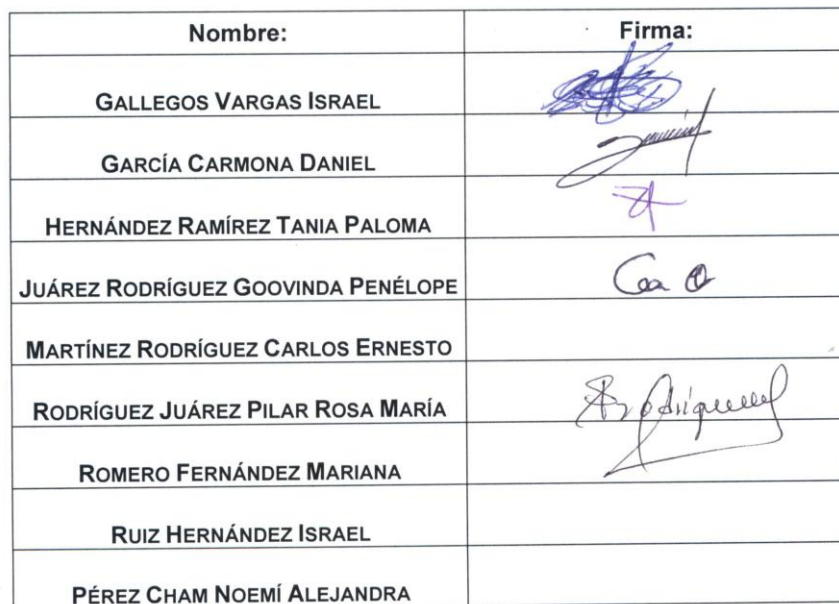 Nombre: Firma:
GALLEGOS VARGAS ISRAEL
GARCÍA CARMONA DANIEL
HERNÁNDEZ RAMÍREZ TANIA PALOMA
JUÁREZ RODRÍGUEZ GOOVINDA PENÉLOPE
MARTÍNEZ RODRÍGUEZ CARLOS ERNESTO
RODRÍGUEZ JUÁREZ PILAR ROSA MARÍA
ROMERO FERNÁNDEZ MARIANA
RUIZ HERNÁNDEZ ISRAEL
PÉREZ CHAM NOEMÍ ALEJANDRA